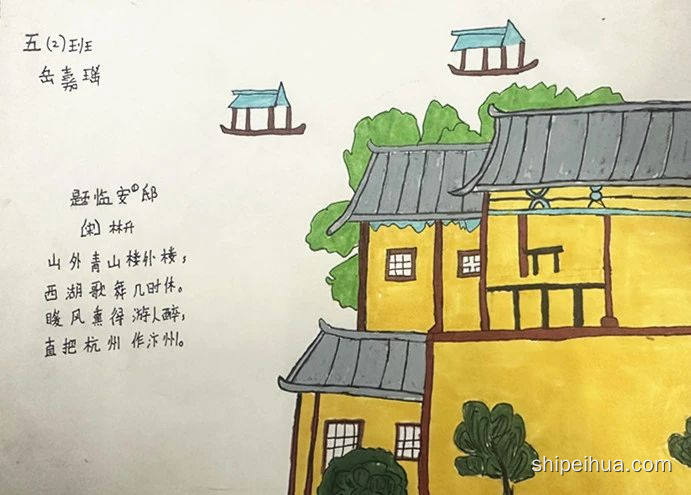 五(2)班
岳嘉瑶
题临安①邸
[宋] 林升
山外青山楼外楼，
西湖歌舞几时休。
暖风熏得游人醉，
直把杭州作汴州。
shipeihua.com